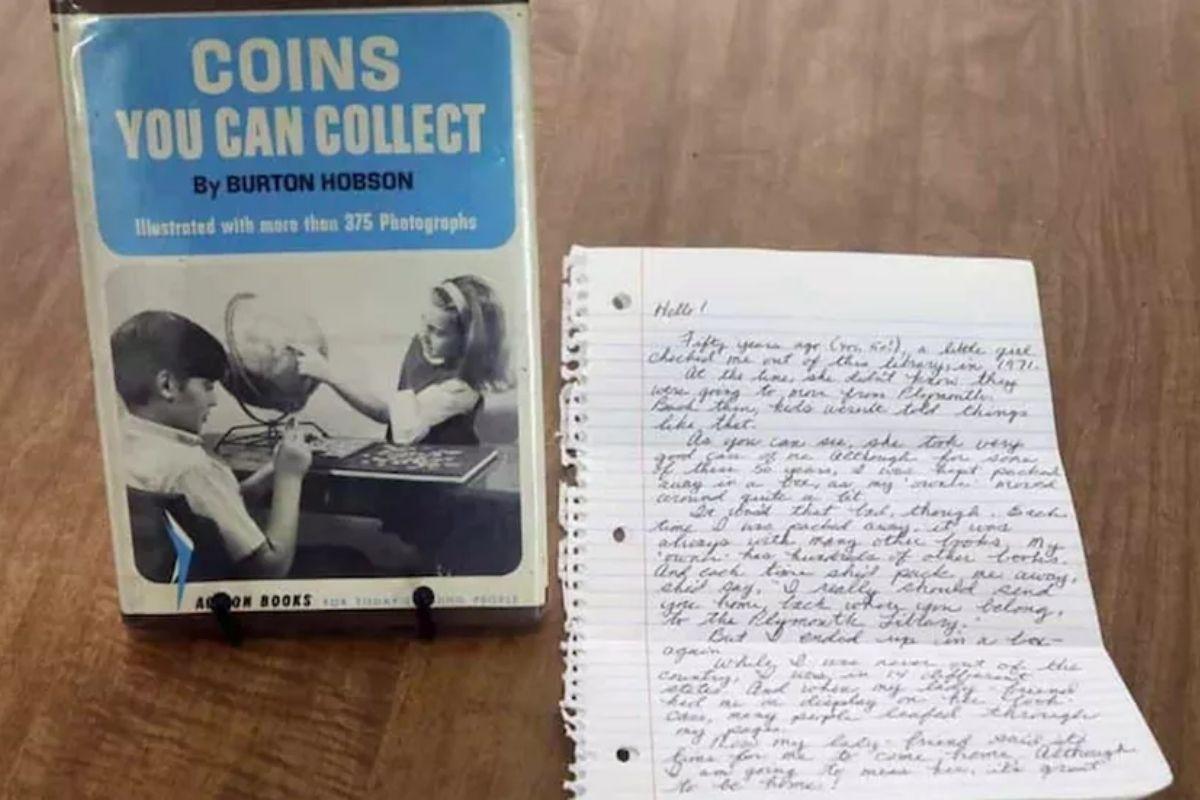 COINS
YOU CAN COLLECT
By BURTON HOBSON
Illustrated with more than 375 Photographs
BOOKS FOR TODAY'S YOUNG PEOPLE
Hello!
Fifty years ago (yes, 50!), a little girl
checked me out of this library, in 1971.
At the time, she didn't know they
were going to move from Plymouth.
Back then, kids weren't told things
like that.
As you can see, she took very
good care of me Although for some
of these 50 years, I was kept packed
away in a box, as my 'owner' moved
around quite a bit.
It wasn't that bad, though. Each
time I was packed away, it was
always with many other books. My
'owner' has hundreds of other books.
And each time she'd pack me away,
she'd say, "I really should send
you home, back where you belong,
to the Plymouth Library."
But I ended up in a box-
again
While I was never out of the
country, I was in 14 different
states. And when my lady-friend
had me on display on her book
case, many people leafed through
my pages.
Now my lady-friend said it's
time for me to come home. Although
I am going to miss her, it's great
to be home!